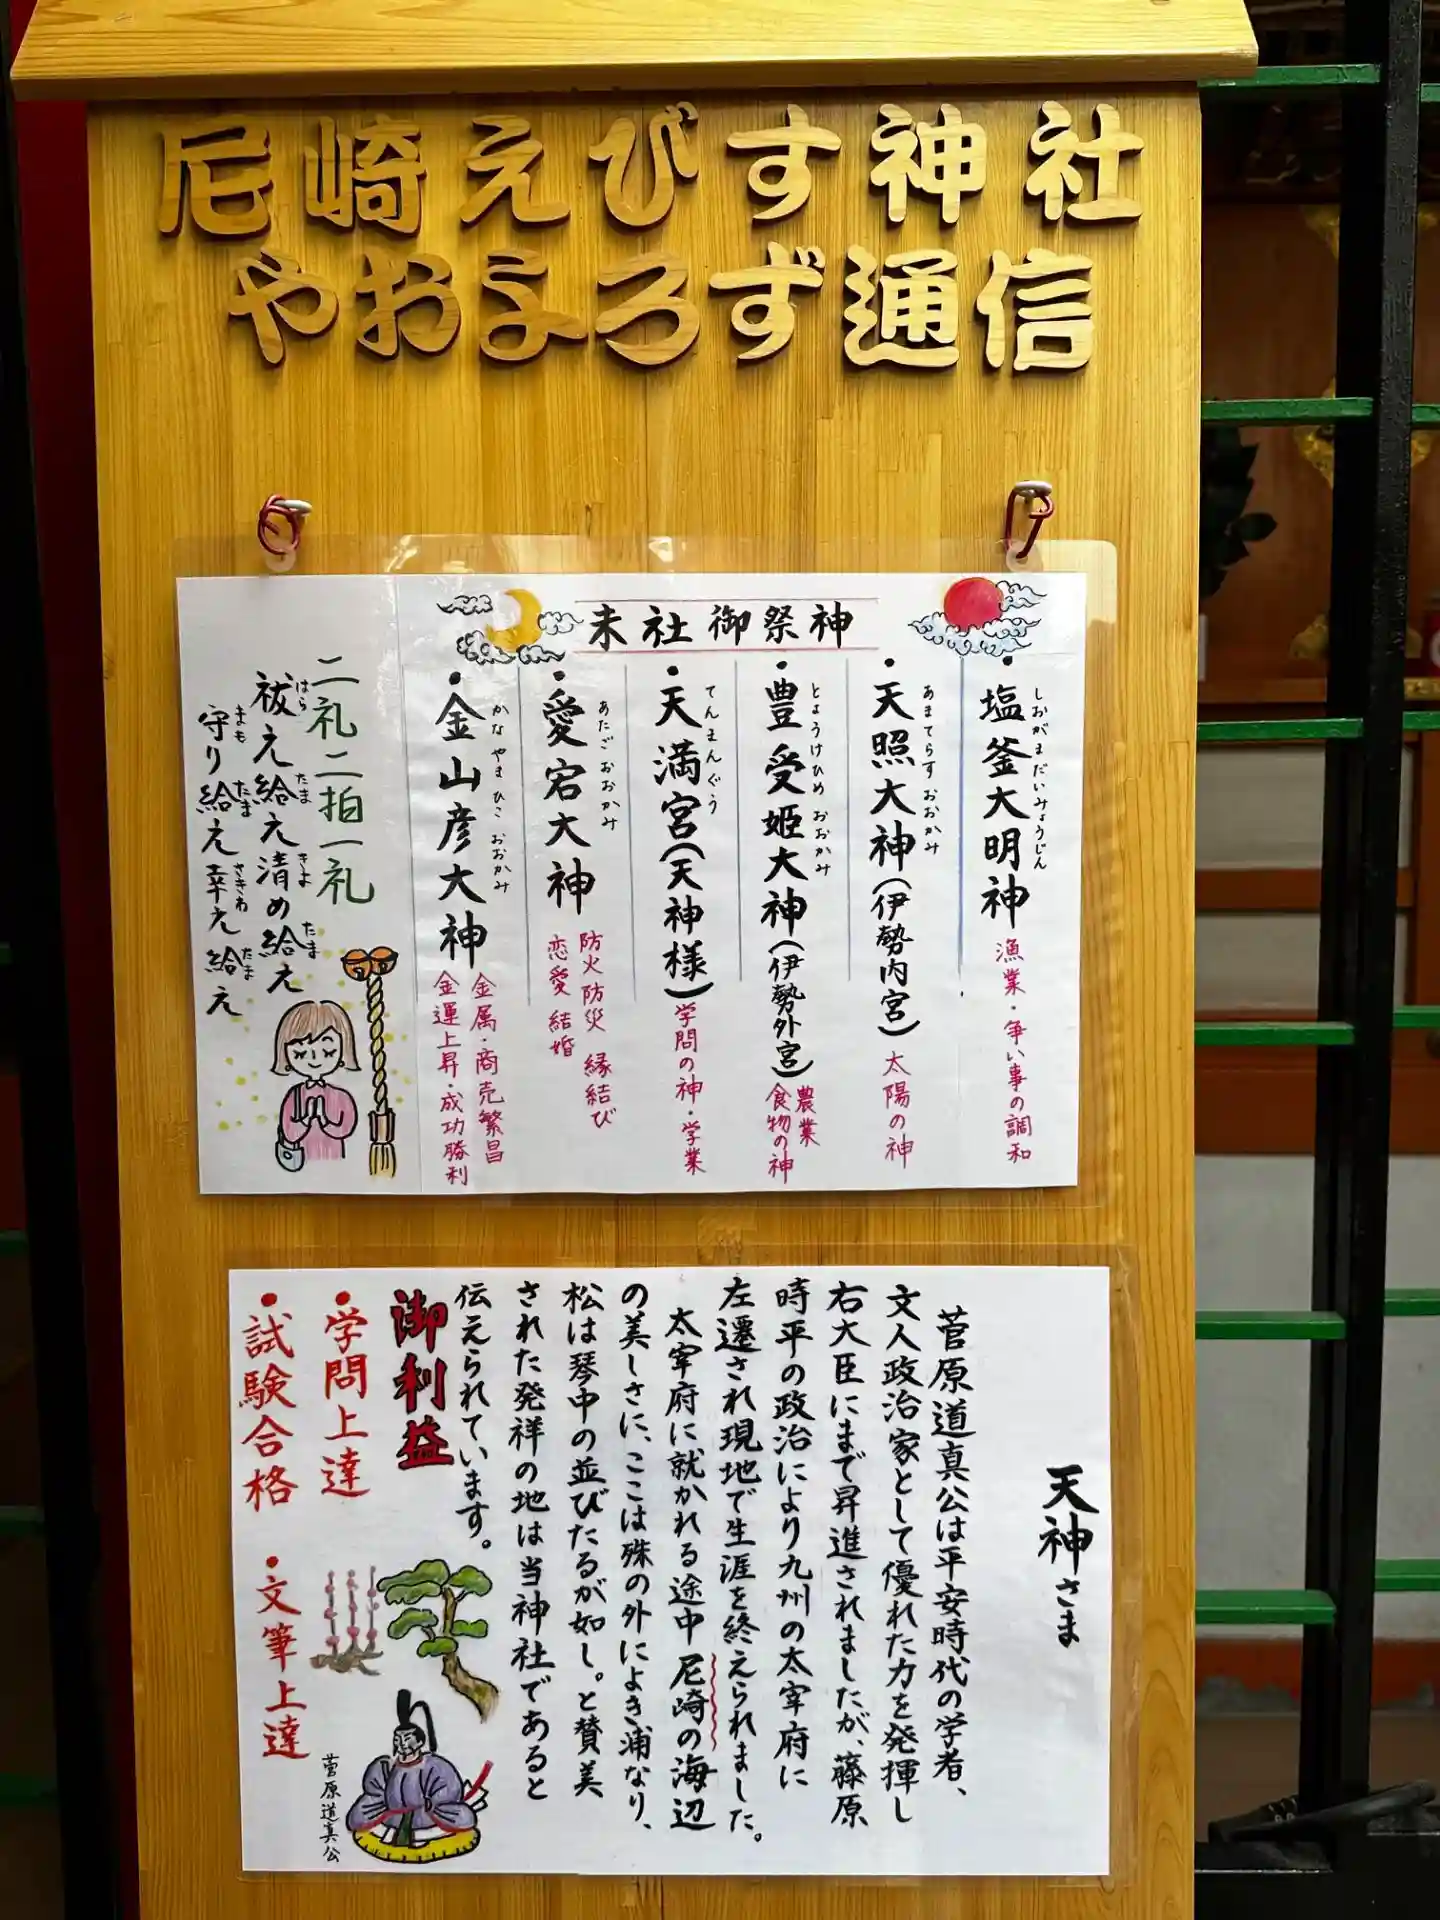 尼崎えびす神社
やおよろず通信
末社御祭神
・塩釜大明神
しおがまだいみょうじん
漁業・争い事の調和
・天照大神(伊勢内宮)
あまてらすおおかみ
太陽の神
・豊受姫大神(伊勢外宮)
とようけひめ おおかみ
農業
食物の神
・天満宮(天神様)
てんまんぐう
学問の神・学業
・愛宕大神
あたごおおかみ
防火防災 縁結び
恋愛 結婚
・金山彦大神
かなやまひこ おおかみ
金属・商売繁昌
金運上昇・成功勝利
二礼二拍一礼
祓え給え清め給え
はら たま きよ たま
守り給え幸え給え
まも たま さきわ たま
天神さま
菅原道真公は平安時代の学者、
文人政治家として優れた力を発揮し
右大臣にまで昇進されましたが、藤原
時平の政治により九州の太宰府に
左遷され現地で生涯を終えられました。
太宰府に就かれる途中尼崎の海辺
の美しさに、ここは殊の外によき浦なり、
松は琴中の並びたるが如し。と賛美
された発祥の地は当神社であると
伝えられています。
御利益
・学問上達
・試験合格
・文筆上達
菅原道真公